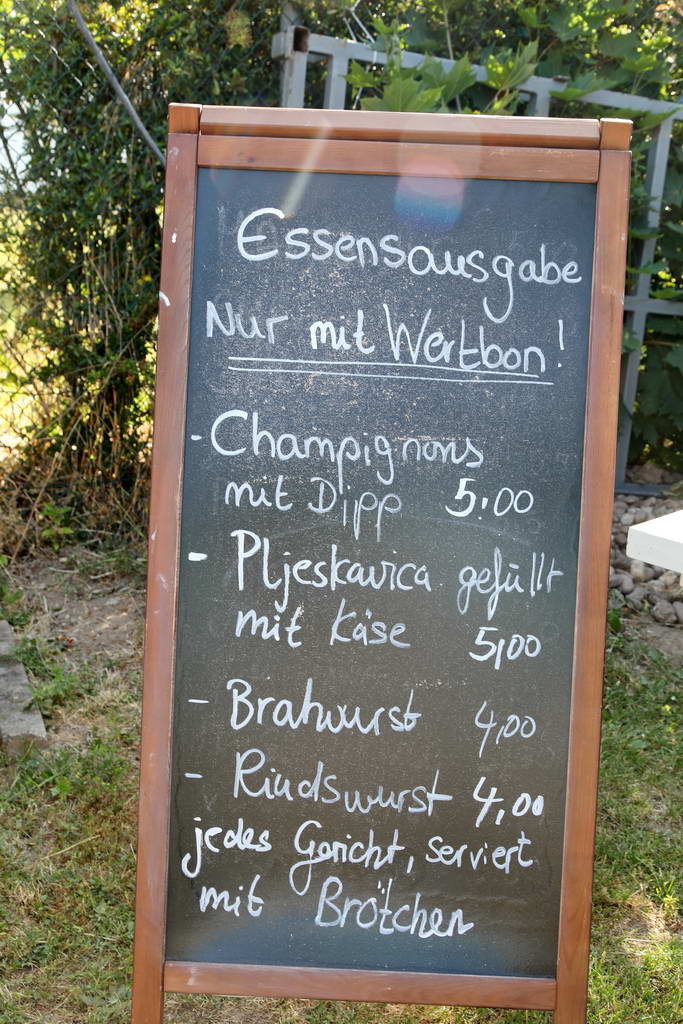 Essensausgabe
Nur mit Wertbon!
- Champignons
mit Dipp 5,00
- Pljeskavica gefüllt
mit Käse 5,00
- Bratwurst 4,00
- Rindswurst 4,00
jedes Gericht, serviert
mit Brötchen